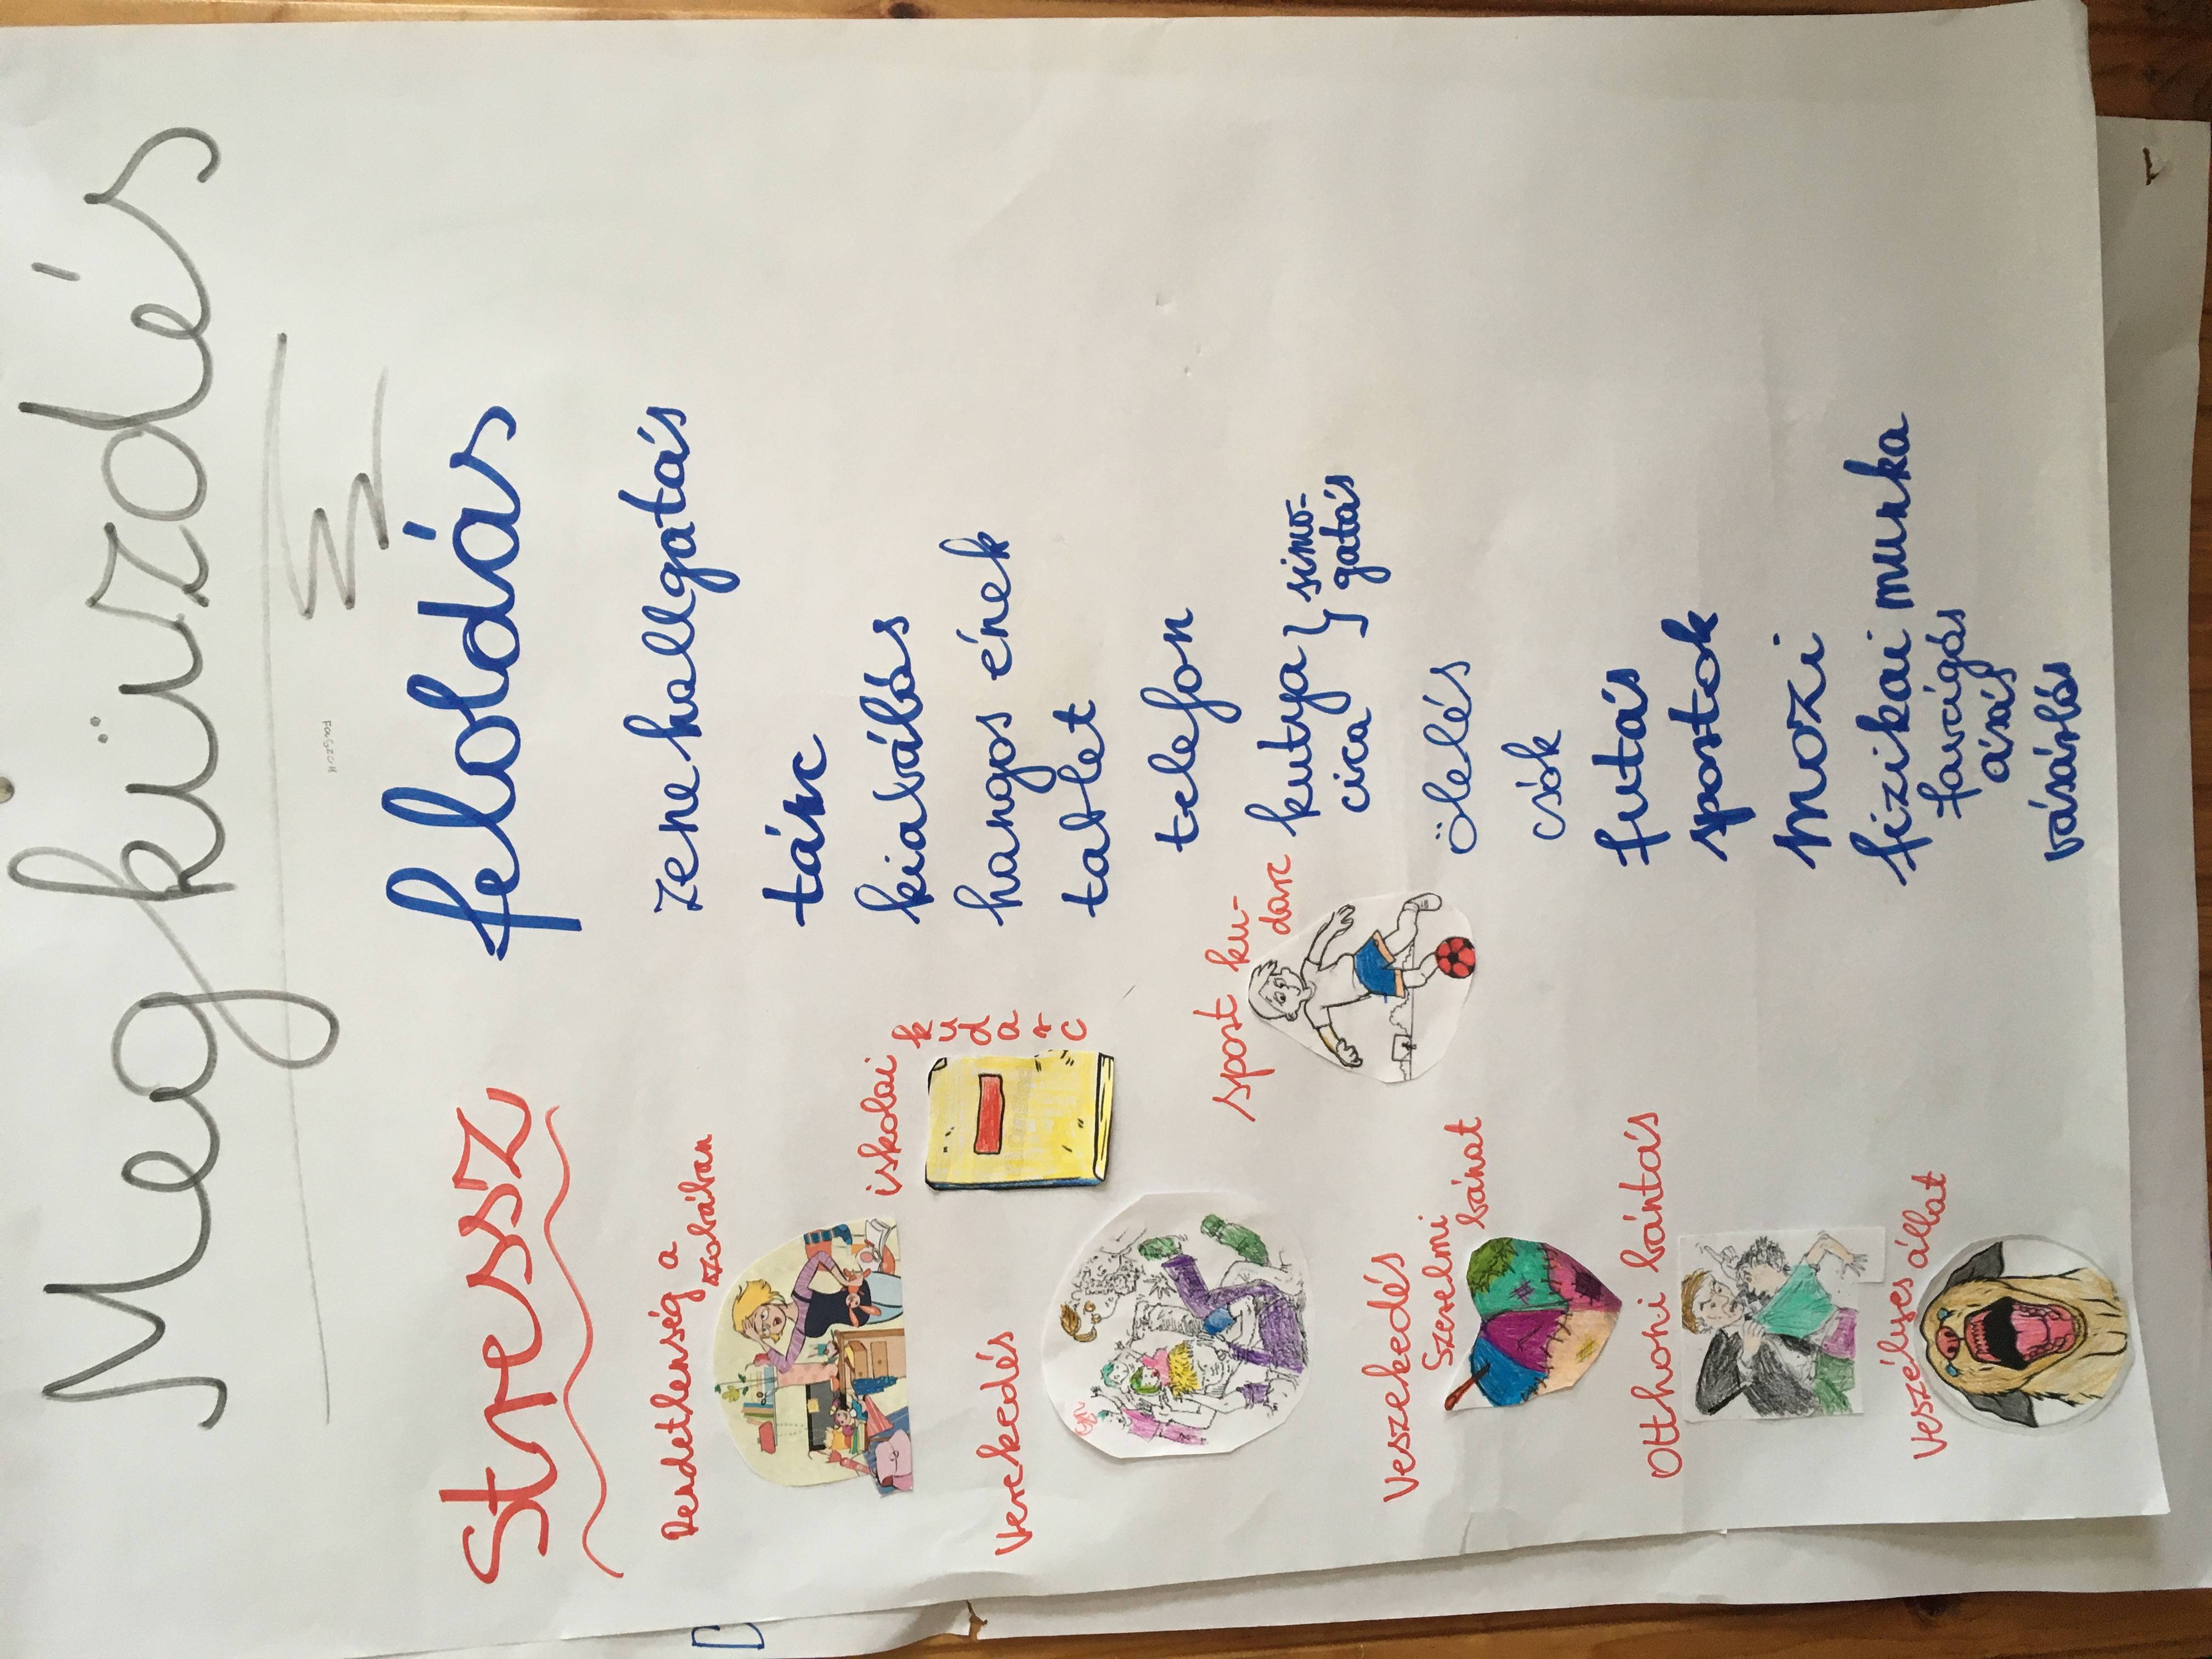 Megküzdés
stressz
Rendetlenség a
szobában
iskolai
kudarc
Verekedés
sport ku-
darc
Veszekedés
Szerelmi
bánat
Otthoni bántás
Veszélyes állat
feloldás
zenehallgatás
tánc
kiabálás
hangos ének
tablet
telefon
kutya } simo-
cica } gatás
ölelés
csók
futás
sportok
mozi
fizikai munka
favágás
ásás
vásárlás